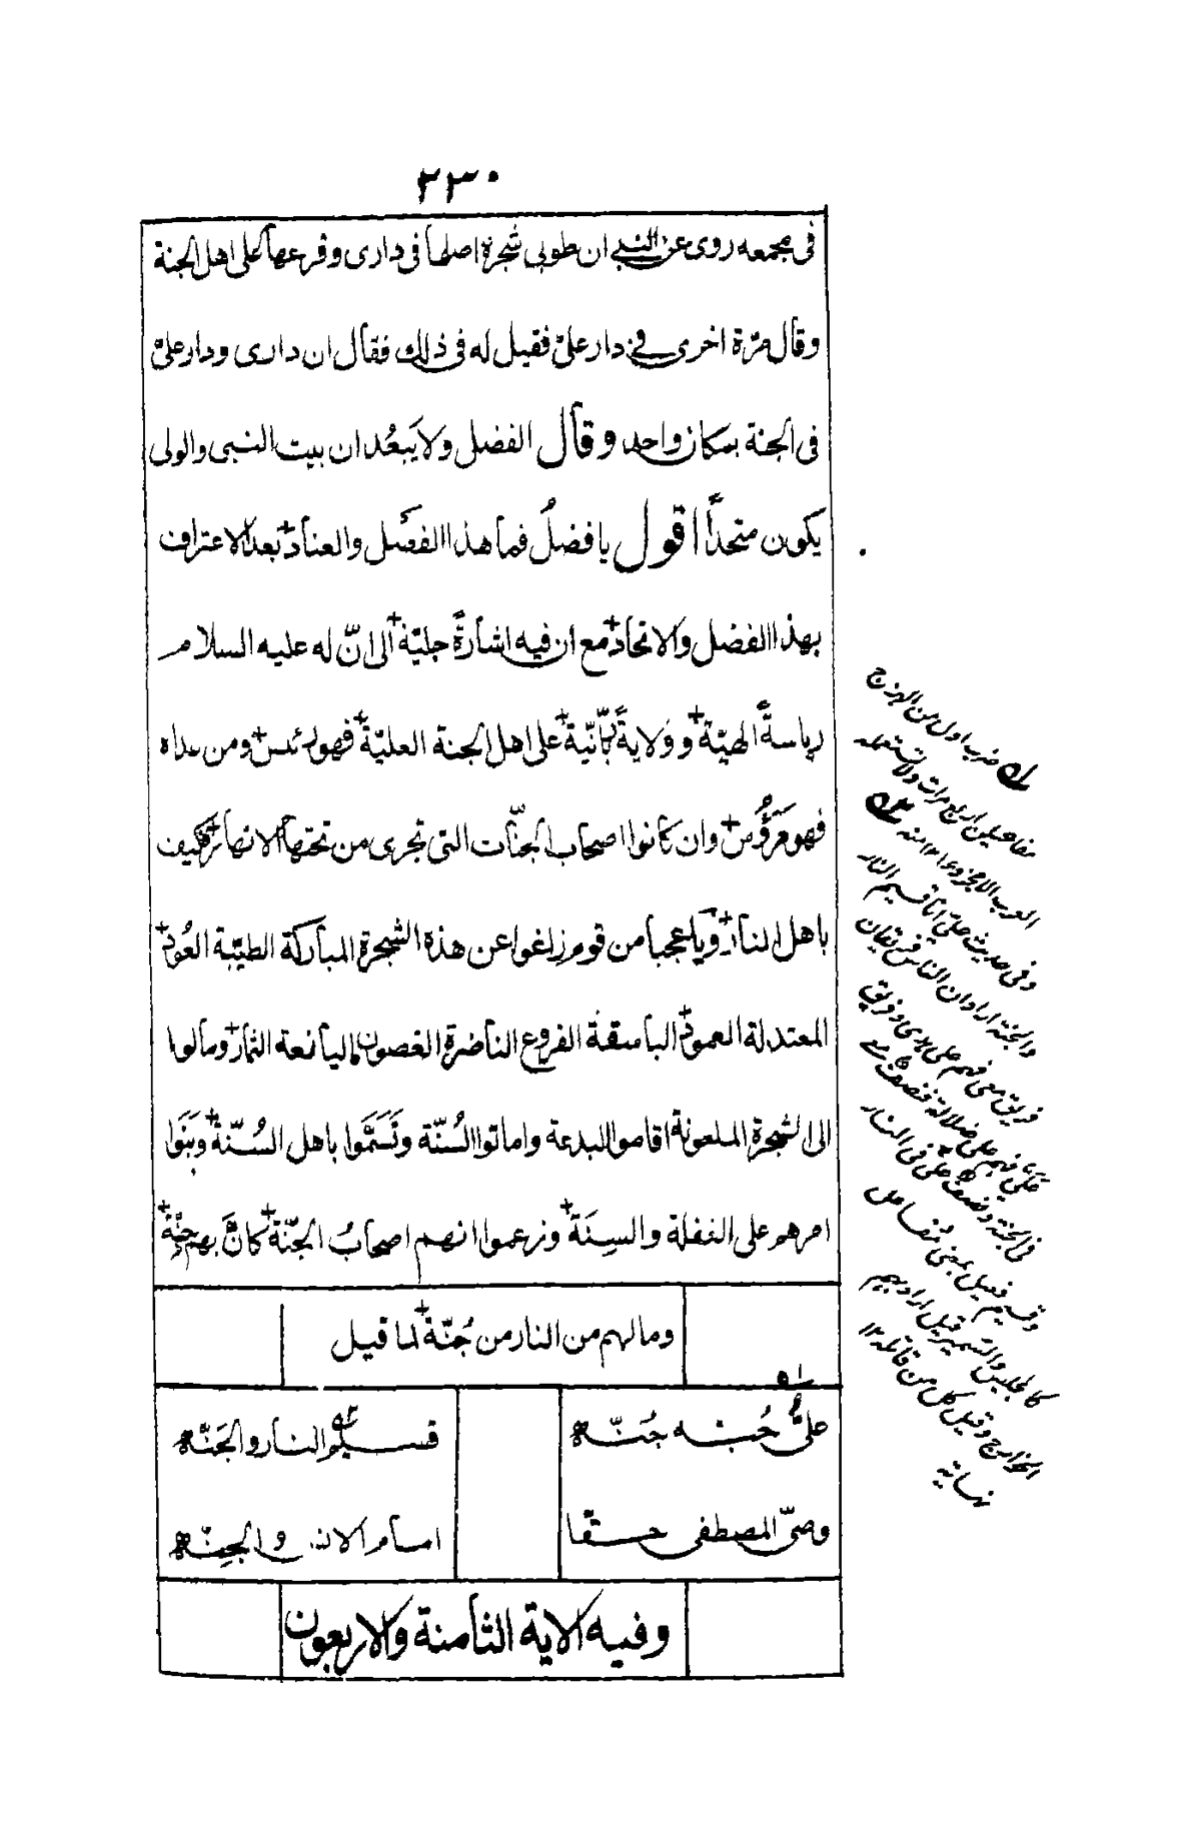 ٢٣٠
فى مجمعه روى عن النبى ان طوبى شجرة اصلها فى دارى وفرعها على اهل الجنة
وقال مرّة اخرى فى دار علىّ فقيل له فى ذلك فقال ان دارى ودار علىّ
فى الجنة بمكان واحد وقال الفضل ولا يَبعُد ان بيت النبى والولى
يكون متحدًا اقول يا فضلُ فما هذا الفضل والعناد بعد الاعتراف
بهذا الفضل والاتحاد مع ان فيه اشارةً جليّة الى انّ له عليه السلام
رياسةً الهيّة وولايةً ربّانيّة على اهل الجنة العليّة فهو رئيس ومن سواه
فهو مَرؤُس وان كانوا اصحاب الجنّات التى تجرى من تحتها الانهار فكيف
باهل النار ويا عجبا من قوم زاغوا عن هذه الشجرة المباركة الطيّبة العُود
المعتدلة العمود الباسقة الفروع الناضرة الغصون اليانعة الثمار ومالوا
الى الشجرة الملعونة اقاموا البدعة واماتوا السُنّة وتَسَمَّوا باهل السُنّة وبَنَوا
امرهم على الغفلة والسِنَة وزعموا انهم اصحابُ الجَنّة كانّ بهم جِنّة
وما لهم من النار من جُنّة لما قيل
علىٌّ حُبّه جُنّه
قسيم النار والجَنّه
وصىّ المصطفى حقًا
امام الانس والجِنّه
وفيه الاية الثامنة والاربعون
له ضرب اول من الهزج
مفاعيلن اربع مرات ولا تستعمله
العرب الا مجزوءا ١٢ منه
وفى حديث علىّ انا قسيم النار
والجنة اراد ان الناس فريقان
فريق معى فهم على هدى وفريق
علىّ فهم على ضلالة فنصف معى
فى الجنة ونصف علىّ فى النار
وقسيم فعيل بمعنى مفاعل
كالجليس والسمير قيل اراد بهم
الخوارج وقيل كل من قاتله ١٢
نهاية